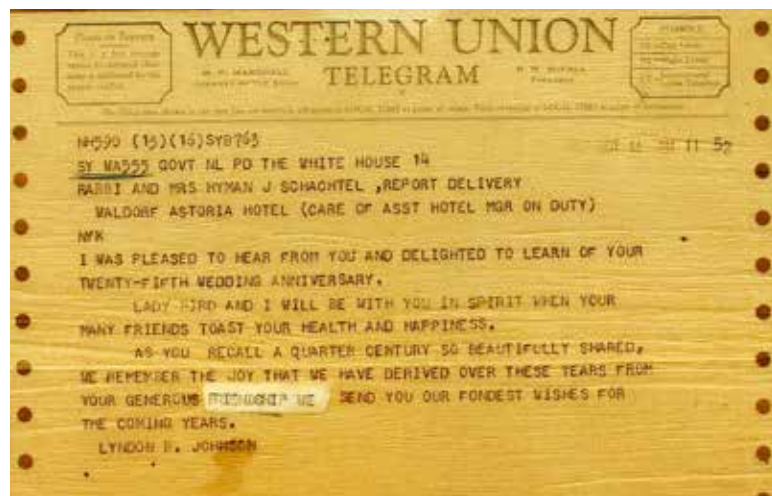 WESTERN UNION
TELEGRAM
W. P. MARSHALL
NH590 (15)(16)SYB763
SY WA555 GOVT NL PD THE WHITE HOUSE 14
RABBI AND MRS HYMAN J SCHACHTEL ,REPORT DELIVERY
WALDORF ASTORIA HOTEL (CARE OF ASST HOTEL MGR ON DUTY)
NYK
I WAS PLEASED TO HEAR FROM YOU AND DELIGHTED TO LEARN OF YOUR
TWENTY-FIFTH WEDDING ANNIVERSARY.
LADY BIRD AND I WILL BE WITH YOU IN SPIRIT WHEN YOUR
MANY FRIENDS TOAST YOUR HEALTH AND HAPPINESS.
AS YOU RECALL A QUARTER CENTURY SO BEAUTIFULLY SHARED,
WE REMEMBER THE JOY THAT WE HAVE DERIVED OVER THESE YEARS FROM
YOUR GENEROUS FRIENDSHIP WE SEND YOU OUR FONDEST WISHES FOR
THE COMING YEARS.
LYNDON B. JOHNSON